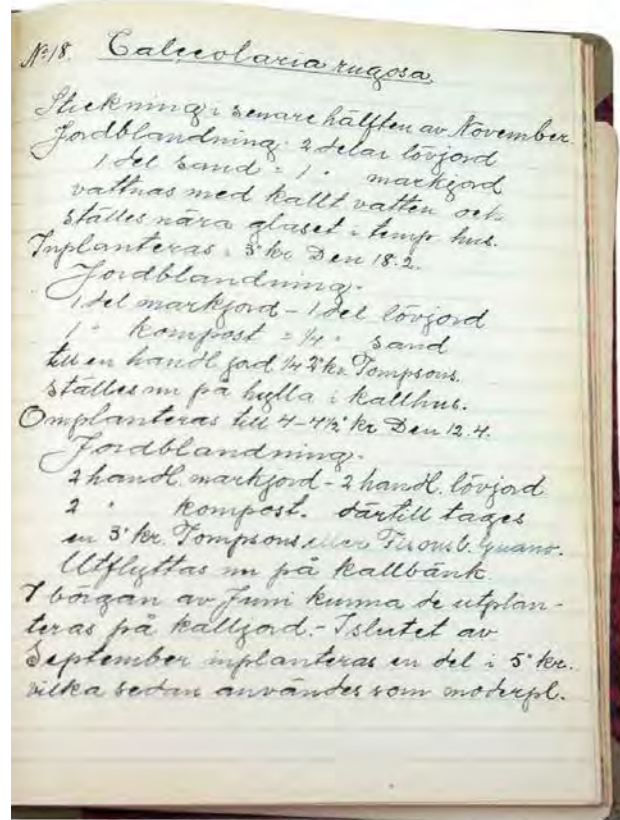 No 18. Calceolaria rugosa.
Stickning i senare hälften av November.
Jordblandning. 2 delar lövjord
1 del sand = 1 " markjord
vattnas med kallt vatten och
ställes nära glaset i temp hus.
Inplanteras i 3" kr. Den 18.2.
Jordblandning.
1 del markjord – 1 del lövjord
1 " kompost = ¼ " sand
till en handl jord ¼ 2" kr. Tompsons.
ställes nu på hylla i kallhus.
Omplanteras till 4–4½" kr Den 12.4.
Jordblandning.
2 handl. markjord – 2 handl. lövjord
2 " kompost. därtill tages
en 3" kr. Tompsons eller Fisons b. guano.
Utflyttas nu på kallbänk.
I börgan av Juni kunna de utplan-
teras på kalljord. – I slutet av
September inplanteras en del i 5" kr.
vilka sedan användes som moderpl.